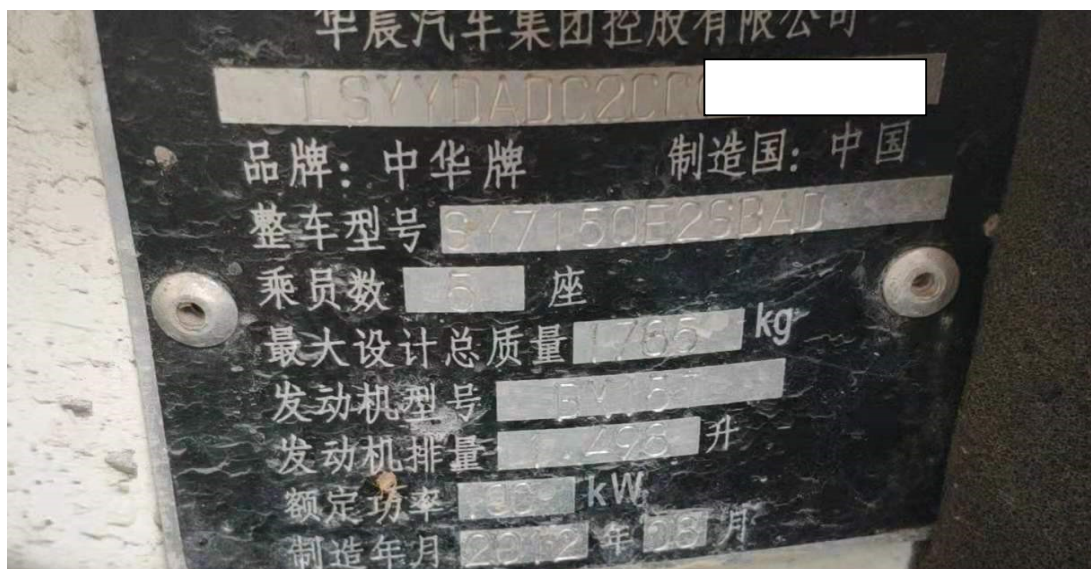 华晨汽车集团控股有限公司
LSYYDADC2CC
品牌：中华牌 制造国：中国
整车型号 SY7150E2SBAD
乘员数 5 座
最大设计总质量 1765 kg
发动机型号 BM15T
发动机排量 1.498 升
额定功率 kW
制造年月 2012 年 08 月